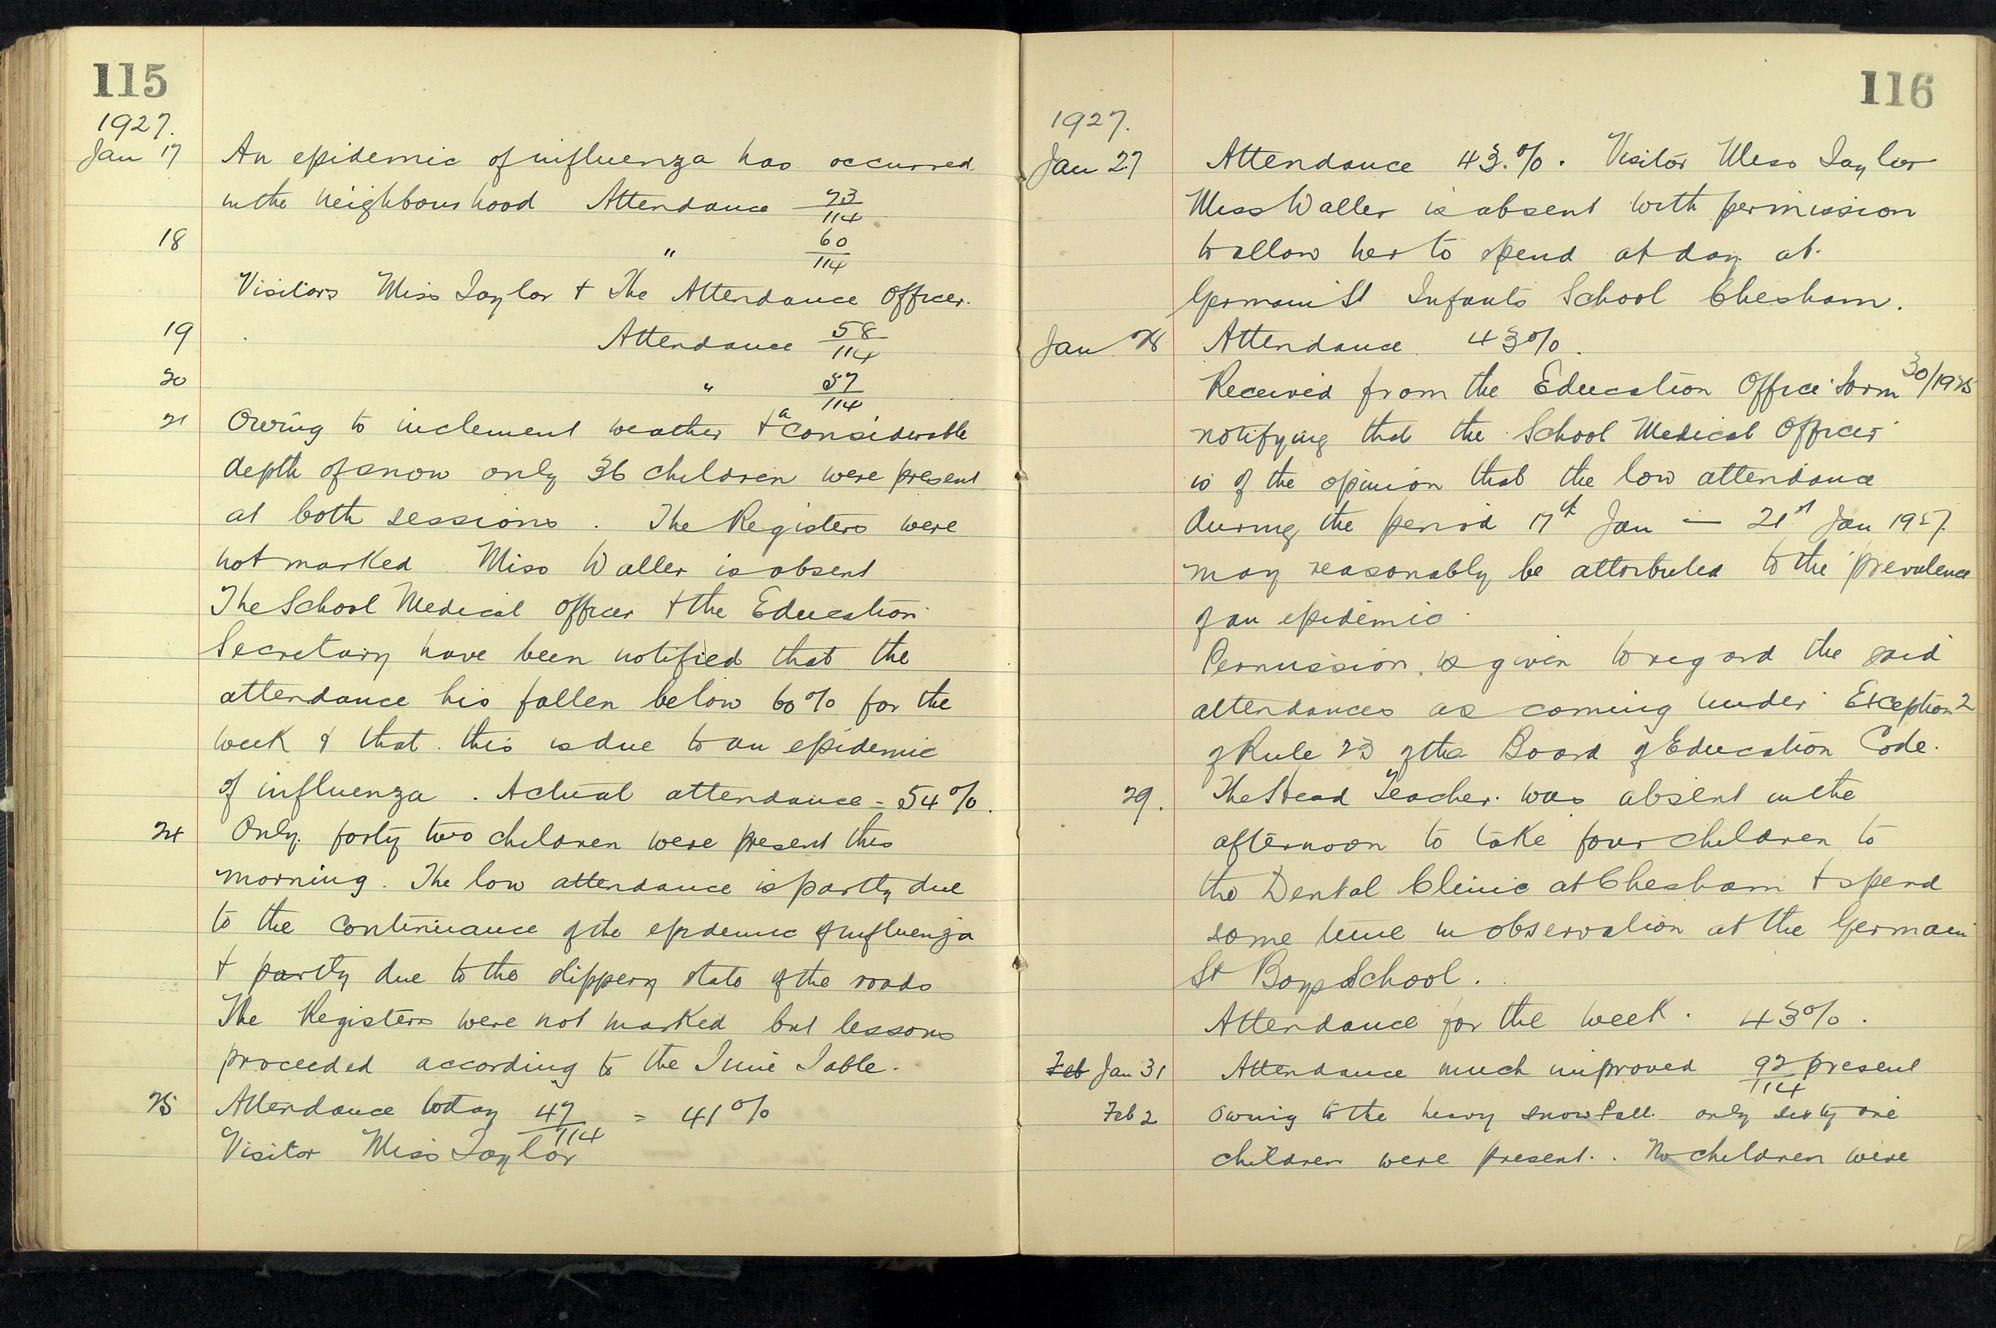 115
1927.
Jan 17 An epidemic of influenza has occurred
in the neighbourhood Attendance 73/114
18 " 60/114
Visitors Miss Taylor + The Attendance Officer.
19 Attendance 58/114
20 " 57/114
21 Owing to inclement weather + a considerable
depth of snow only 36 children were present
at both sessions. The Registers were
not marked Miss Waller is absent
The School Medical Officer + the Education
Secretary have been notified that the
attendance his fallen below 60% for the
week & that this is due to an epidemic
of influenza. Actual attendance = 54%.
24 Only forty two children were present this
morning. The low attendance is partly due
to the continuance of the epidemic of influenza
+ partly due to the slippery state of the roads
The Registers were not marked but lessons
proceeded according to the Time Table.
25 Attendance today 47/114 = 41%
Visitor Miss Taylor
116
1927.
Jan 27 Attendance 43.%. Visitor Miss Taylor
Miss Waller is absent with permission
to allow her to spend at day at
Germain St Infants School Chesham.
Jan 28 Attendance 43%.
Received from the Education Office form 30/1925
notifying that the School Medical Officer
is of the opinion that the low attendance
during the period 17th Jan — 21st Jan 1927
may reasonably be attributed to the prevalence
of an epidemic.
Permission is given to regard the said
attendances as coming under Exception 2
of Rule 23 of the Board of Education Code.
29. The Head Teacher was absent in the
afternoon to take four children to
the Dental Clinic at Chesham + spend
some time in observation at the Germain
St Boys School.
Attendance for the week. 43%.
Feb Jan 31 Attendance much improved 92/114 present
Feb 2 Owing to the heavy snow fall only sixty one
children were present. No children were